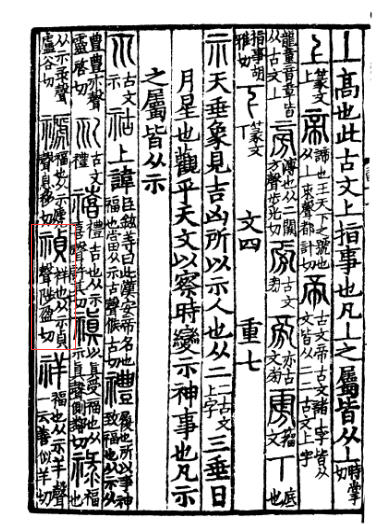 丄高也此古文上指事也凡丄之屬皆从丄時掌切
𠄞篆文上帝諦也王天下之號也从丄朿聲都計切帝古文帝古文諸丄字皆从一篆文皆从二二古文上字
龍童音章皆从古文上㫄溥也从二闕方聲步光切㫄古文㫄㫄亦古文㫄雱籒文丅底也
指事胡雅切丅篆文 文四 重七
示天垂象見吉凶所以示人也从二二古文上字三垂日
月星也觀乎天文以察時變示神事也凡示
之屬皆从示
古文示祜上諱臣鉉等曰此漢安帝名也福也當从示古聲候古切禮履也所以事神致福也从示从
豊豊亦聲靈啓切古文禮禧禮吉也从示喜聲許其切禛以真受福也从示真聲側鄰切祿福也
从示彔聲盧谷切禠福也从示虒聲息移切禎祥也从示貞聲陟盈切祥福也从示羊聲一云善似羊切